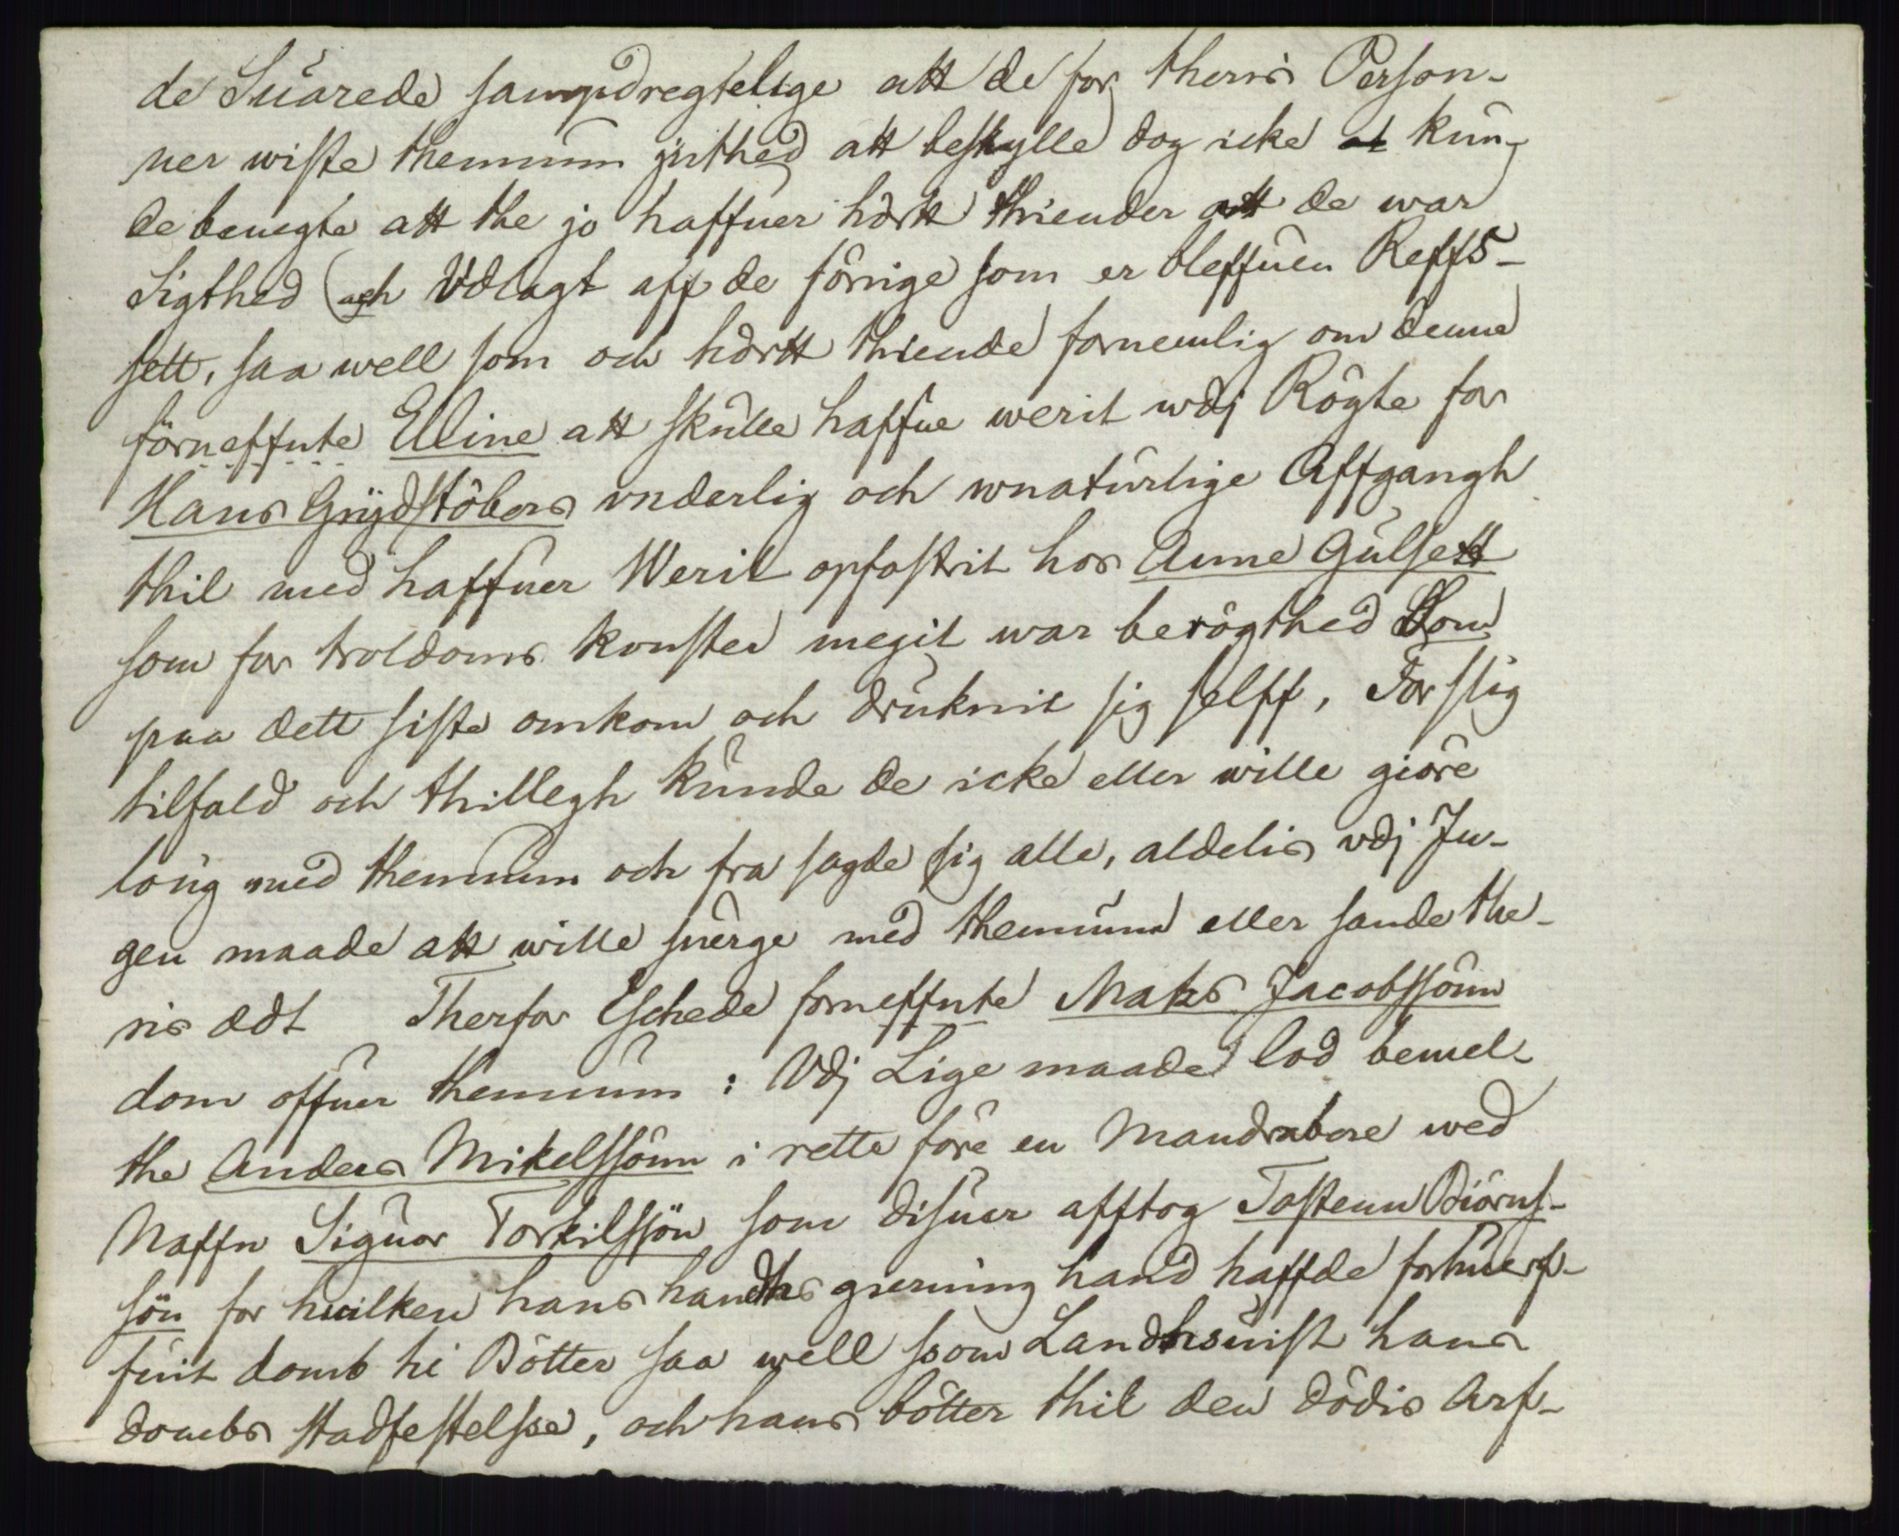 de Suarede sampdregtelige att de for theris Person-
ner wiste themmum jnthed att beskylle dog icke at kun-
de benegte att the jo haffuer hørtt thiender att de war
Sigthed och Vdlagt aff de förrige som er bleffuen Reffs-
sett, saa well som och hørtt thiende fornemlig om denne
förneffnte Elline att skulle haffue werit wdj Rögte for
Hans Grydstöbers vnderlig och wnaturlige Affgangh
thil med haffuer Werit opfostrit hos Anne Gulsett
som for troldoms konster megit war berögthed Som
paa dett siste omkom och druknit sig selff, For slig
tilfald och thillegh kunde de icke eller wille giöre
loug med themmum och fra sagde sig alle, aldelis vdj In-
gen maade att wille suerge med themmum eller sande the-
ris ædt Therfor Eschede forneffnte Mats Jacobssönn
dom offuer themmum : Vdj Lige maade lod bemel-
the Anders Mikelssönn i rette före en Mandrabere wed
Naffn Siguor Torkilssön som disuer afftog Tostenn Biörns-
sön for huilken hans handhs gierning hand haffde forhuerf-
fuit domb hi Bötter saa well ssom Landhsuist hans
dombs stadfestelsse, och hans bötter thil den dödis Arf-